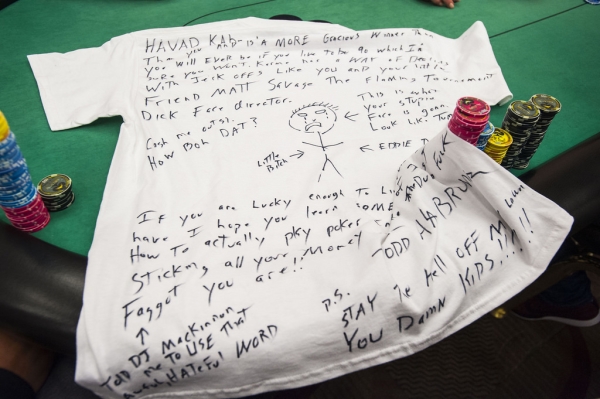 HAVAD KAH IS A MORE Gracious Winner Than
You AND
You will EVER be if you live to be 90 which I'm
Sure you Won't. Karma has a WAY of Dealing
With Jerk OFFS Like You and your Little
Friend MATT SAVAGE The Flaming Tournament
Dick Face director.
Cash me outsi
How Boh DAT?
This is when
your stupid
Face is gonna
Look like.
Little
Bitch →
← EDDIE
If you are Lucky enough to Live
have I hope you learn SOME
How To actually play poker
Sticking all your money
Faggot you are!!
↑
DJ MacKinnon
told me to USE that
HATEFUL WORD
TODD
P.S.
STAY The hell OFF My
You Damn KIDS!!!!!